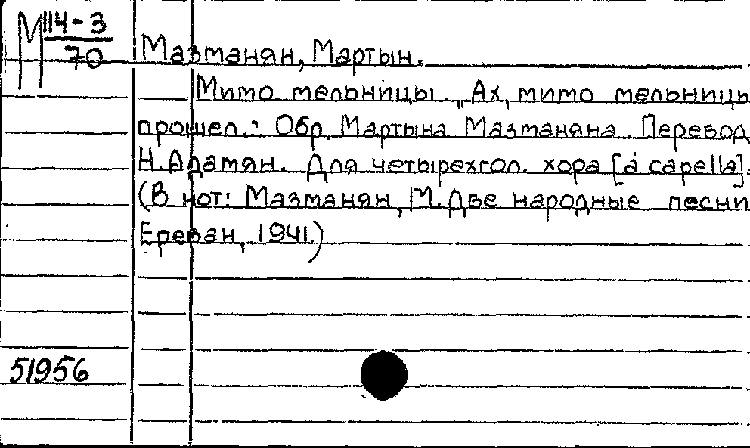 М 114-3
70
Мазманян, Мартын.
Мимо мельницы. „Ах, мимо мельницы
прошел.: Обр. Мартына Мазманяна. Перевод
Н. Адамян. Для четырехгол. хора [a capella].
(В нот: Мазманян, М. Две народные песни
Ереван, 1941.)
51956